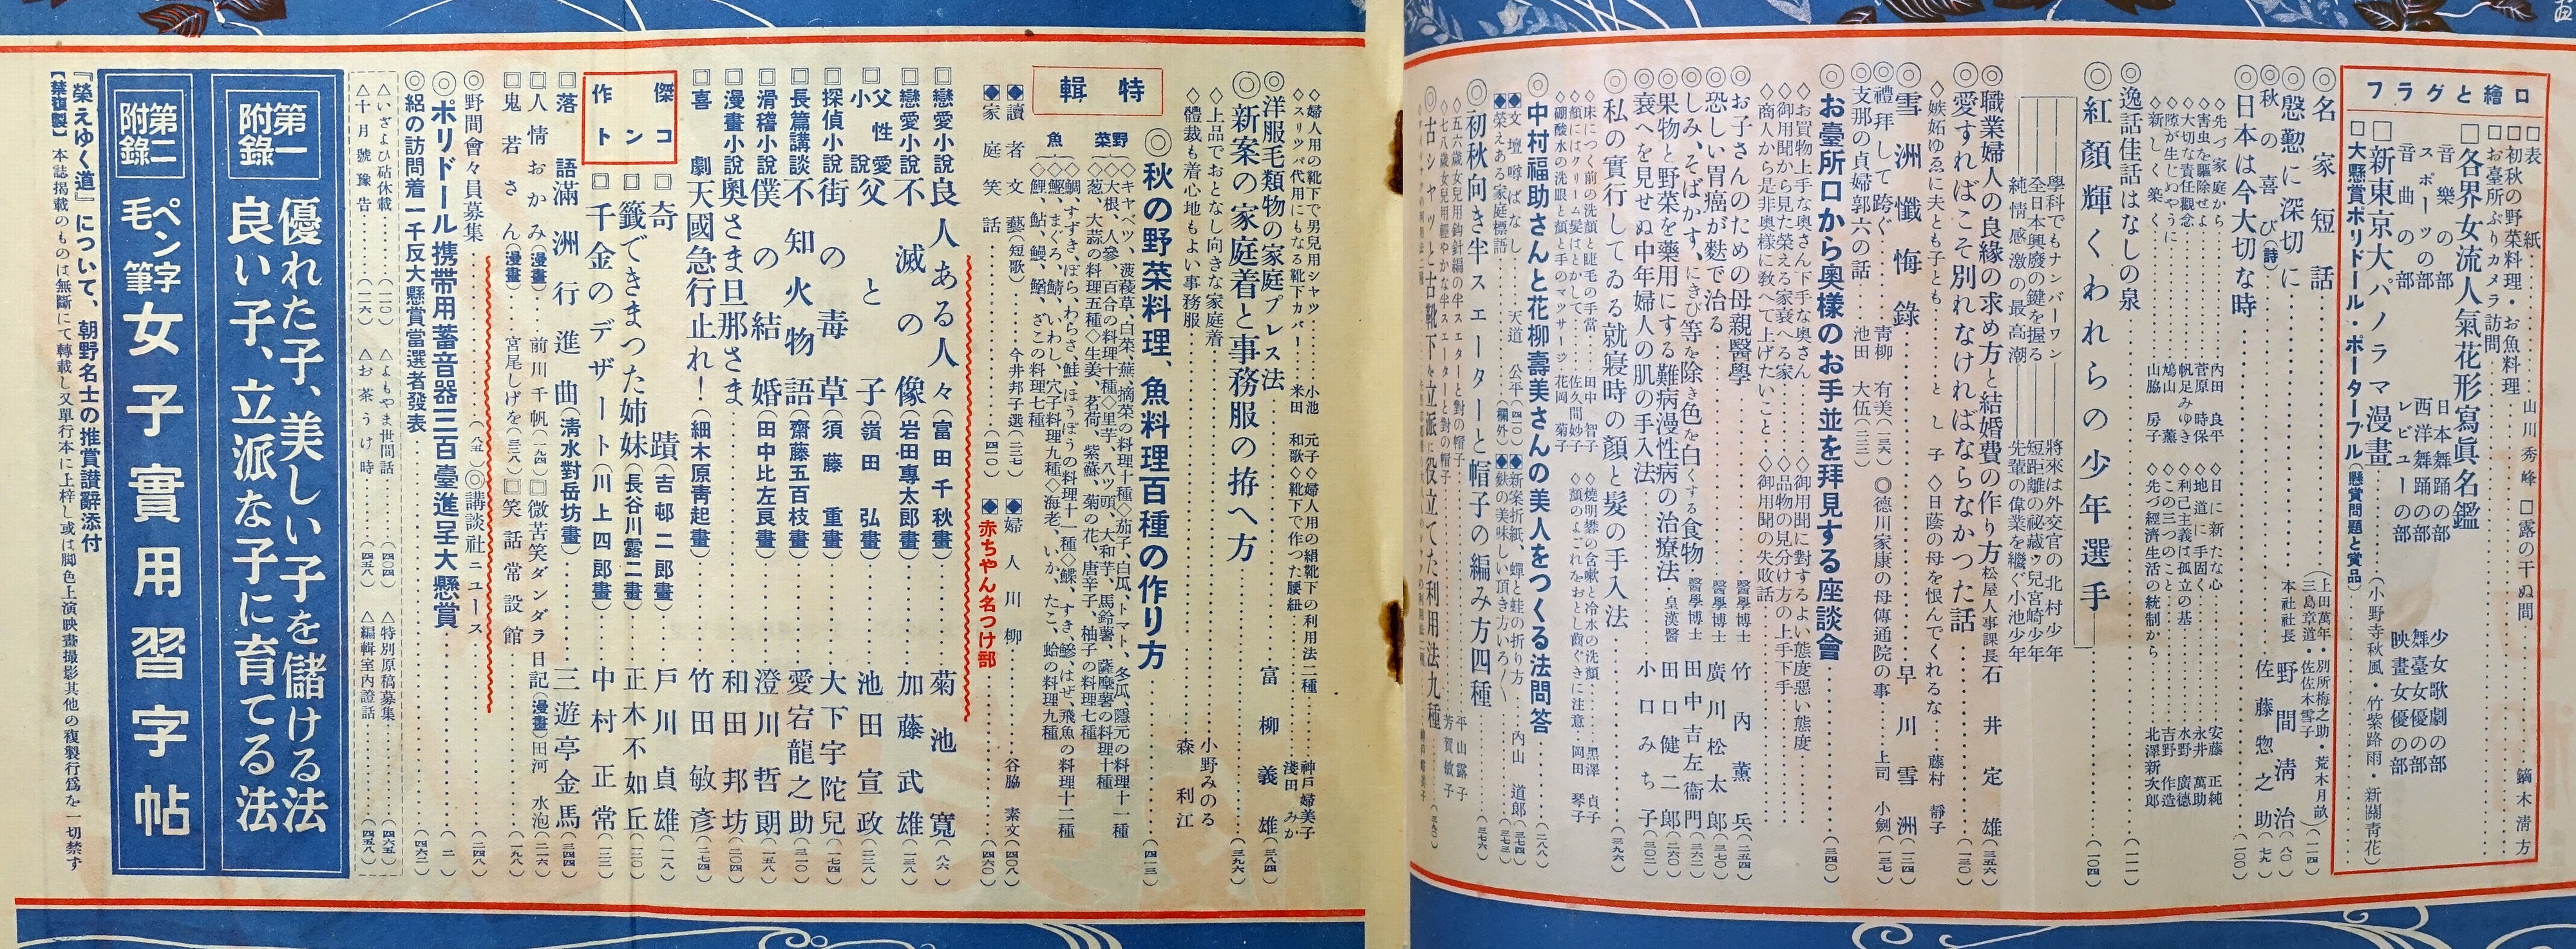 口繪とグラフ
□表紙……山川秀峰
□露の干ぬ間……鏑木淸方
□初秋の野菜料理・お魚料理
□お臺所ぶりカメラ訪問
□各界女流人氣花形寫眞名鑑
音樂の部
日本舞踊の部
少女歌劇の部
スポーツの部
西洋舞踊の部
舞臺女優の部
音曲の部
レビューの部
映畫女優の部
□新東京大パノラマ漫畫……(小野寺秋風・竹紫路雨・新關靑花)
□大懸賞ポリドール・ポータブル(懸賞問題と賞品)
◎名家短話……(上田萬年・別所梅之助・荒木月畝 三島章道・佐佐木雪子)(一一四)
◎慇懃に深切に……本社社長 野間淸治(八〇)
◎秋の喜び(詩)……佐藤惣之助(七九)
◎日本は今大切な時……(一〇〇)
◇先づ家庭から……內田良平
◇日に新たな心……安藤正純
◇害虫を驅除せよ……菅原時保
◇地道に手固く……永井萬助
◇大切な責任觀念……帆足みゆき
◇利己主義は孤立の基……水野廣德
◇隙が生じぬやうに……鳩山薰
◇この三つのこと……吉野作造
◇新しく築く……山脇房子
◇先づ經濟生活の統制から……北澤新次郎
◎逸話佳話はなしの泉……(一一一)
◎紅顏輝くわれらの少年選手……(一〇四)
學科でもナンバーワン――將來は外交官の北村少年
全日本興廢の鍵を握る――短距離の祕藏ッ兒宮崎少年
純情感激の最高潮――先輩の偉業を繼ぐ小池少年
◎職業婦人の良緣の求め方と結婚費の作り方 松屋人事課長 石井定雄(三五六)
◎愛すればこそ別れなければならなかつた話……(一三〇)
◇嫉妬ゆゑに夫とも子とも……とし子
◇日蔭の母を恨んでくれるな……藤村靜子
◎雪洲懺悔錄……早川雪洲(一二四)
◎禮拜して跨ぐ……靑柳有美(一三六)
◎德川家康の母傳通院の事……上司小劍(一三七)
◎支那の貞婦郭六の話……池田大伍(一三二)
◎お臺所口から奧樣のお手並を拜見する座談會……(三四〇)
◇お買物上手な奧さん下手な奧さん……
◇御用聞に對するよい態度惡い態度
◇御用聞から見た榮える家衰へる家……
◇品物の見分け方の上手下手……
◇商人から是非奧樣に教へて上げたいこと
◇御用聞の失敗話……
◎お子さんのための母親醫學……醫學博士 竹內薰兵(二五四)
◎恐しい胃癌が麩で治る……醫學博士 廣川松太郎(三七〇)
◎しみ、そばかす、にきび等を除き色を白くする食物 醫學博士 田中吉左衞門(三六二)
◎果物と野菜を藥用にする難病漫性病の治療法・皇漢醫 田口健二郎(二六〇)
◎衰へを見せぬ中年婦人の肌の手入法……小口みち子(三〇二)
◎私の實行してゐる就寢時の顏と髮の手入法……(三九六)
◇床につく前の洗顏と睫毛の手當……田中智子
◇燒明礬の含嗽と冷水の洗顏……黑澤貞子
◇顏にはクリーム髮はとかして……佐久間妙子
◇顏のよごれをおとし齒ぐきに注意・岡田琴子
◇硼酸水の洗眼と顏と手のマッサージ 花岡菊子
◎中村福助さんと花柳壽美さんの美人をつくる法問答……(二八八)
◆文壇噂ばなし……天道公平(四二〇)
◆新案折紙、蟬と蛙の折り方……內山道郎(三七四)
◆榮えある家庭標語……(欄外)
◆麩の美味しい頂き方いろ〱(三七三)
◎初秋向き半スエーターと帽子の編み方四種……(三七六)
◇五六歲女兒用鈎針編の半スエターと對の帽子……平山露子
◇七八歲女兒用輕やかな半スエーターと對の帽子……芳賀敏子
◎古シャツと古靴下を立派に役立てた利用法九種
◇婦人用の靴下で男兒用シャツ……小池元子
◇婦人用の絹靴下の利用法二種……神戶婦美子
◇スリッパ代用にもなる靴下カバー……米田和歌
◇靴下で作つた腰紐……淺田みか
◎洋服毛類物の家庭プレス法……富柳義雄(三八四)
◎新案の家庭着と事務服の拵へ方……(三九六)
◇上品でおとなし向きな家庭着……小野みのる
◇體裁も着心地もよい事務服……森利江
特輯
◎秋の野菜料理、魚料理百種の作り方……(四一三)
野菜
◇キャベツ、菠稜草、白菜、蕪、摘菜の料理十種◇茄子、白瓜、トマト、冬瓜、隱元の料理十一種
◇大根、人參、百合の料理十種◇里芋、八ツ頭、大和芋、馬鈴薯、薩摩薯の料理十種
◇葱、大蒜の料理五種◇生姜、茗荷、紫蘇、菊の花、唐辛子、柚子の料理七種
魚
◇鯛、すずき、ぼら、わらさ、鮭、ほうぼうの料理十一種◇鰈、すき、鰺、はぜ、飛魚の料理十二種
◇鰹、まぐろ、鯖、いわし、穴子料理九種◇海老、いか、たこ、蛤の料理九種
◇鯉、鮎、鰻、鰌、ざこの料理七種
◆讀者文藝(短歌)……今井邦子選(三三七)
◆婦人川柳……谷脇素文(四〇八)
◆家庭笑話……(四一〇)
◆赤ちやん名つけ部……(四六〇)
□戀愛小說 良人ある人々(富田千秋畫)……菊池寬(八六)
□戀愛小說 不滅の像(岩田專太郎畫)……加藤武雄(一三八)
□父性愛小說 父と子(嶺田弘畫)……池田宣政(二二八)
□探偵小說 街の毒草(須藤重畫)……大下宇陀兒(一七四)
□長篇講談 不知火物語(齋藤五百枝畫)……愛宕龍之助(三一〇)
□滑稽小說 僕の結婚(田中比左良畫)……澄川哲朗(一五八)
□漫畫小說 奧さま旦那さま……和田邦坊(二〇四)
□喜劇 天國急行止れ！(細木原靑起畫)……竹田敏彥(二七四)
傑作コント
□奇蹟(吉邨二郎畫)……戶川貞雄(一一八)
□籤できまつた姉妹(長谷川露二畫)……正木不如丘(一二〇)
□千金のデザート(川上四郎畫)……中村正常(一二二)
□落語 滿洲行進曲(淸水對岳坊畫)……三遊亭金馬(三四四)
□人情おかみ(漫畫)……前川千帆(一九四)
□微苦笑ダンダラ日記(漫畫)田河水泡(二一六)
□鬼若さん(漫畫)……宮尾しげを(三八)
□笑話常設館……(一九八)
◎野間會々員募集……(八五)
◎講談社ニュース……(二四八)
◎ポリドール携帶用蓄音器三百臺進呈大懸賞……(二)
◎絽の訪問着一千反大懸賞當選者發表……(四六二)
△いざよひ砧休載……(一一〇)
△よもやま世間話……(四〇四)
△特別原稿募集……(四六五)
△十月號豫告……(一一六)
△お茶うけ時……(四五八)
△編輯室內證話……(四五八)
第一附錄
優れた子、美しい子を儲ける法
良い子、立派な子に育てる法
第二附錄
ペン字毛筆 女子實用習字帖
『榮えゆく道』について、朝野名士の推賞讃辭添付
【禁複製】本誌揭載のものは無斷にて轉載し又單行本に上梓し或は脚色上演映畫撮影其他の複製行爲を一切禁ず